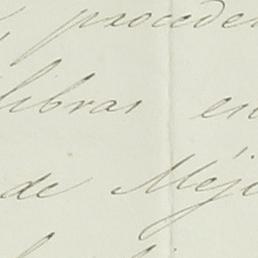 proceden
libras en
de Méji